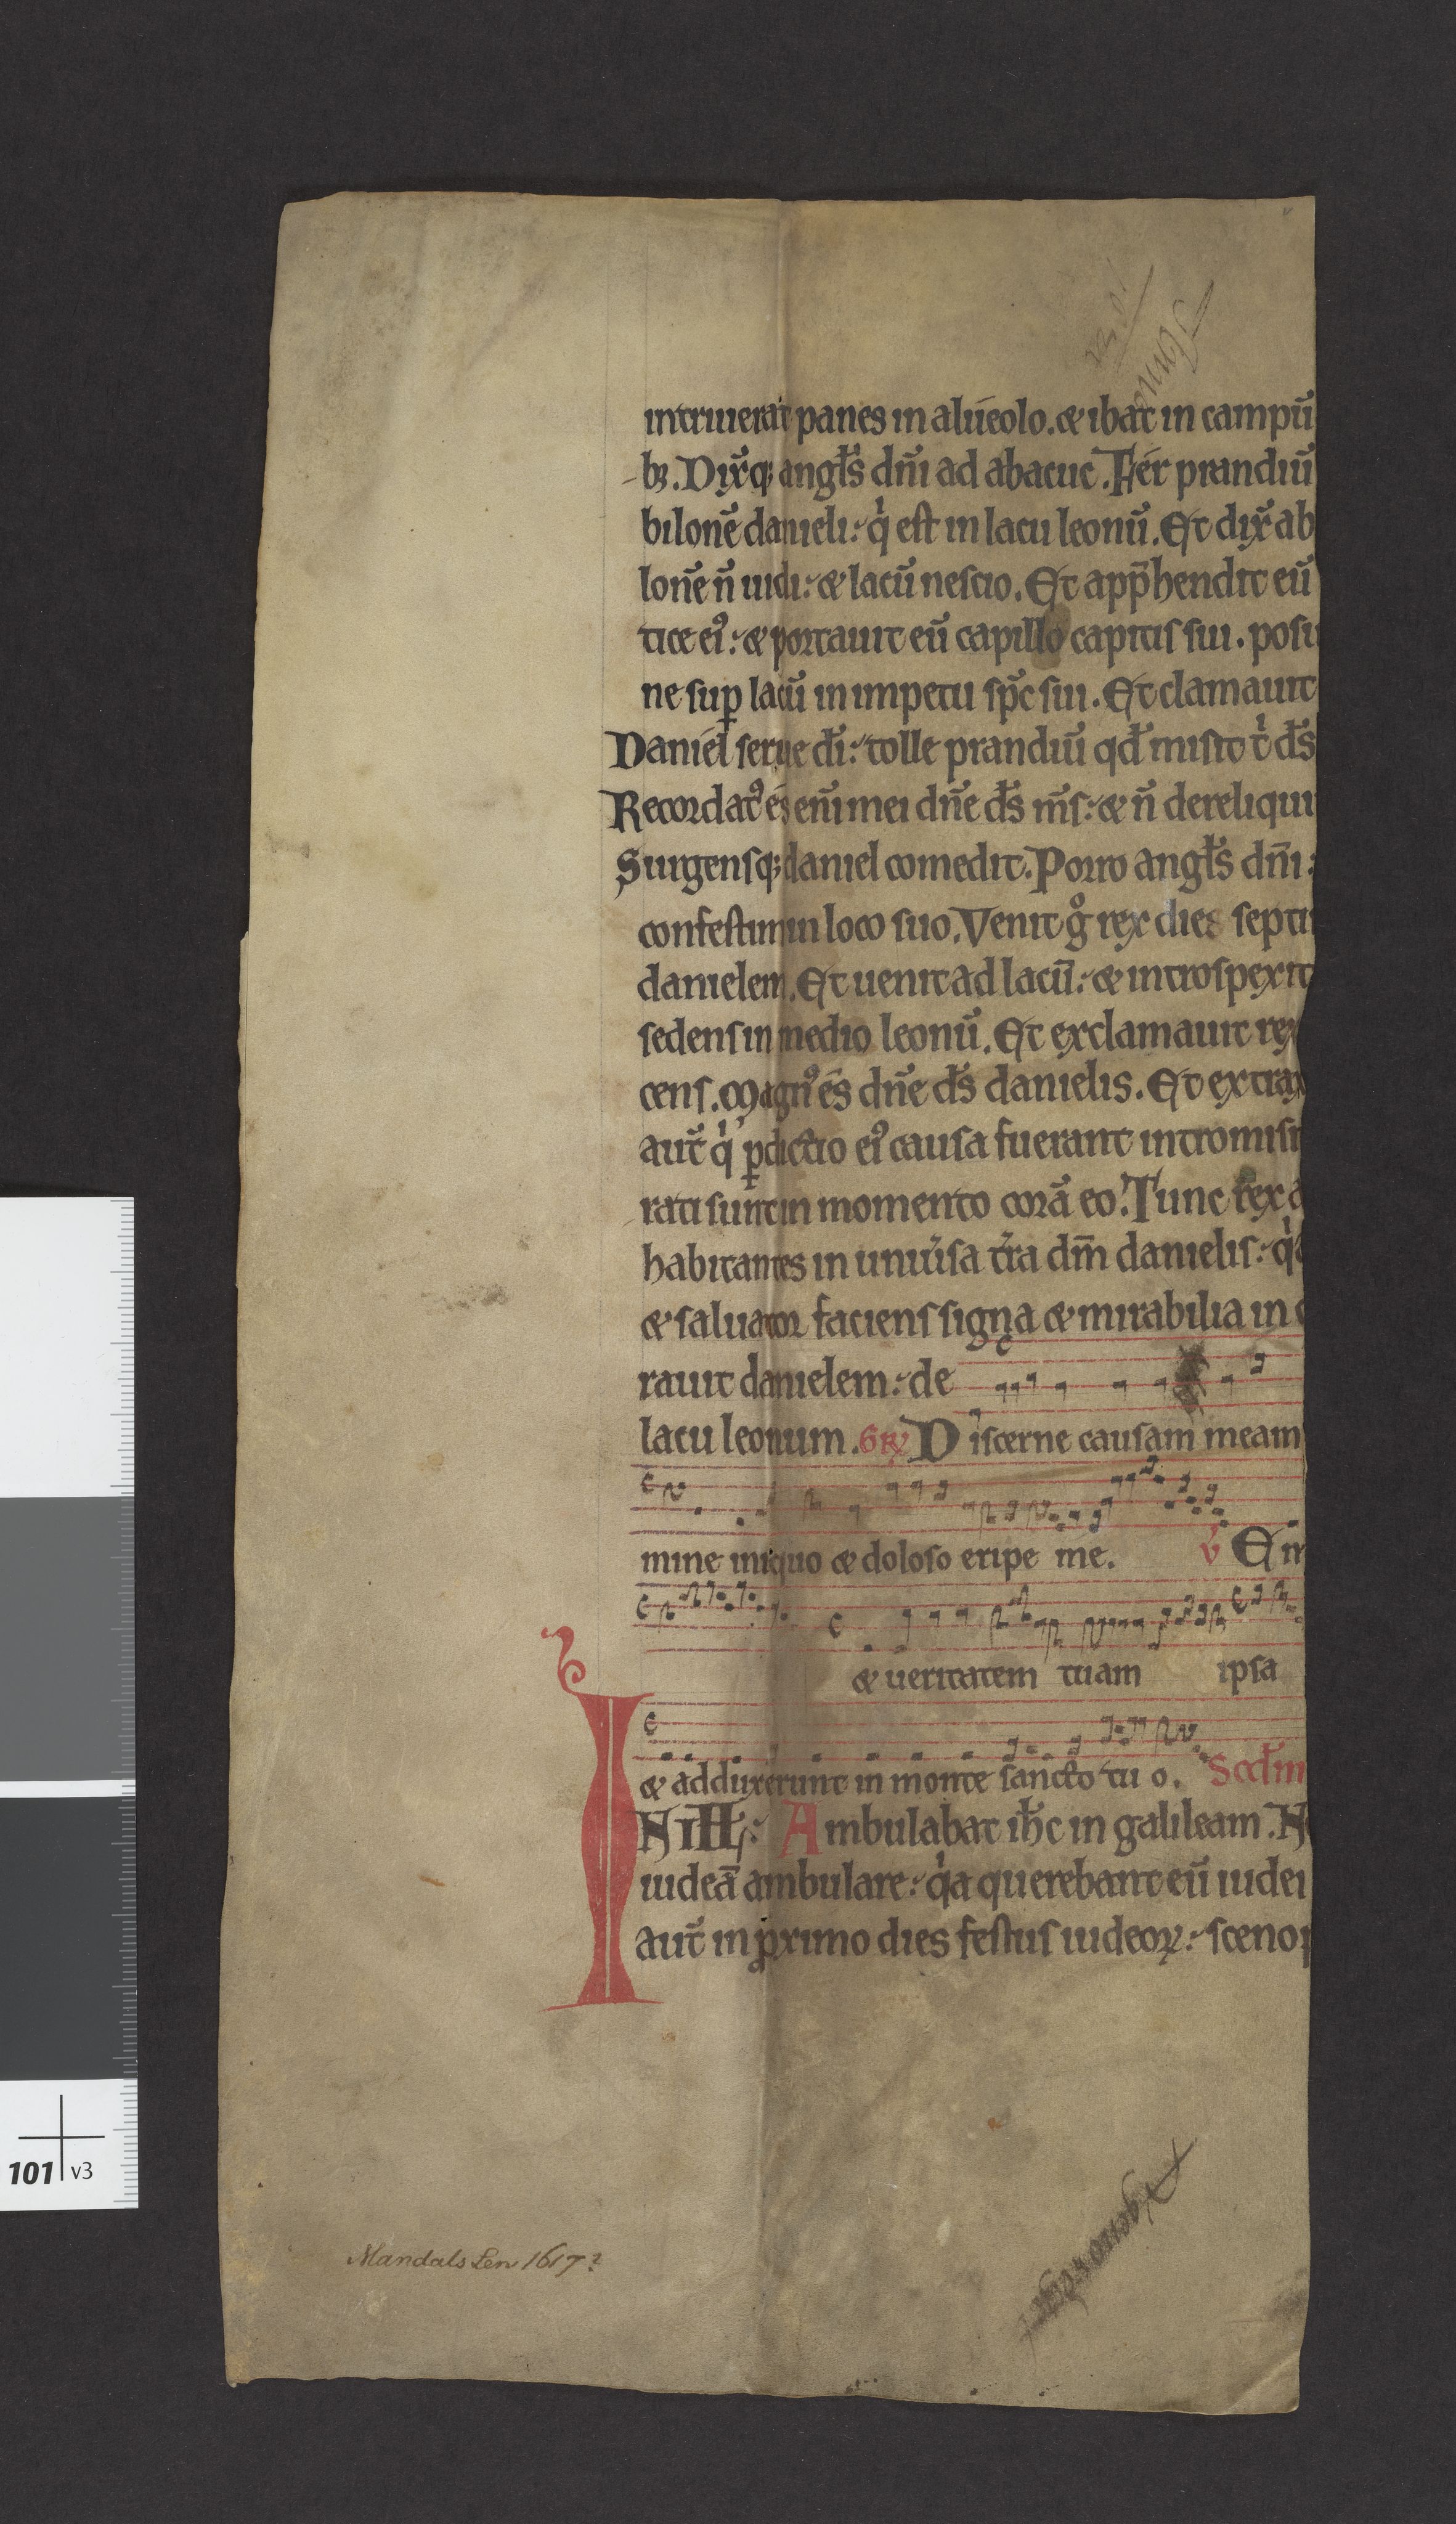 intriuerat panes in alueolo. & ibat in campū
bꝫ. Dix̄qꝫ angl̄s dn̄i ad abacuc. Fer prandiū
bilonē danieli: qͥ est in lacu leonū. Et dix̄ ab
lonē n̄ uidi: & lacū nescio. Et app̄hendit eū
tice eiꝰ: & portauit eū capillo capitis sui. posu
ne suꝑ lacū in impetu sp̄c sui. Et clamauit
Daniel serue dī: tolle prandiū qd̄ misit tͥ ds̄
Recordatꝰ es eni̅ mei dn̄e ds̄ ms̄: & n̄ dereliqui
Surgensqꝫ daniel comedit. Porro angl̄s dn̄i:
confestim in loco suo. Venit gͦ rex die septi
danielem. Et uenit ad lacū: & introspexit
sedens in medio leonū. Et exclamauit rex
cens. Magnꝰ es dn̄e ds̄ danielis. Et extrax
aut̄ qͥ ꝑdictio eiꝰ causa fuerant intromisi
rati sunt in momento corā eo. Tunc rex a
habitantes in uniu̅sa tr̄a dm̄ danielis: qͥ
& saluator faciens signa & mirabilia in
rauit danielem: de
lacu leonum. Gr̄ Discerne causam meam
mine iniquo & doloso eripe me. v̄ Em
& ueritatem tuam ipsa
& adduxerunt in monte sancto tuo. Scd̄m
IN ILL: Ambulabat ih̄c in galileam. N
iudeā ambulare: qͥa querebant eū iudei
aut̄ in ꝓximo dies festus iudeoꝝ: scenop
Mandals Len 1617?